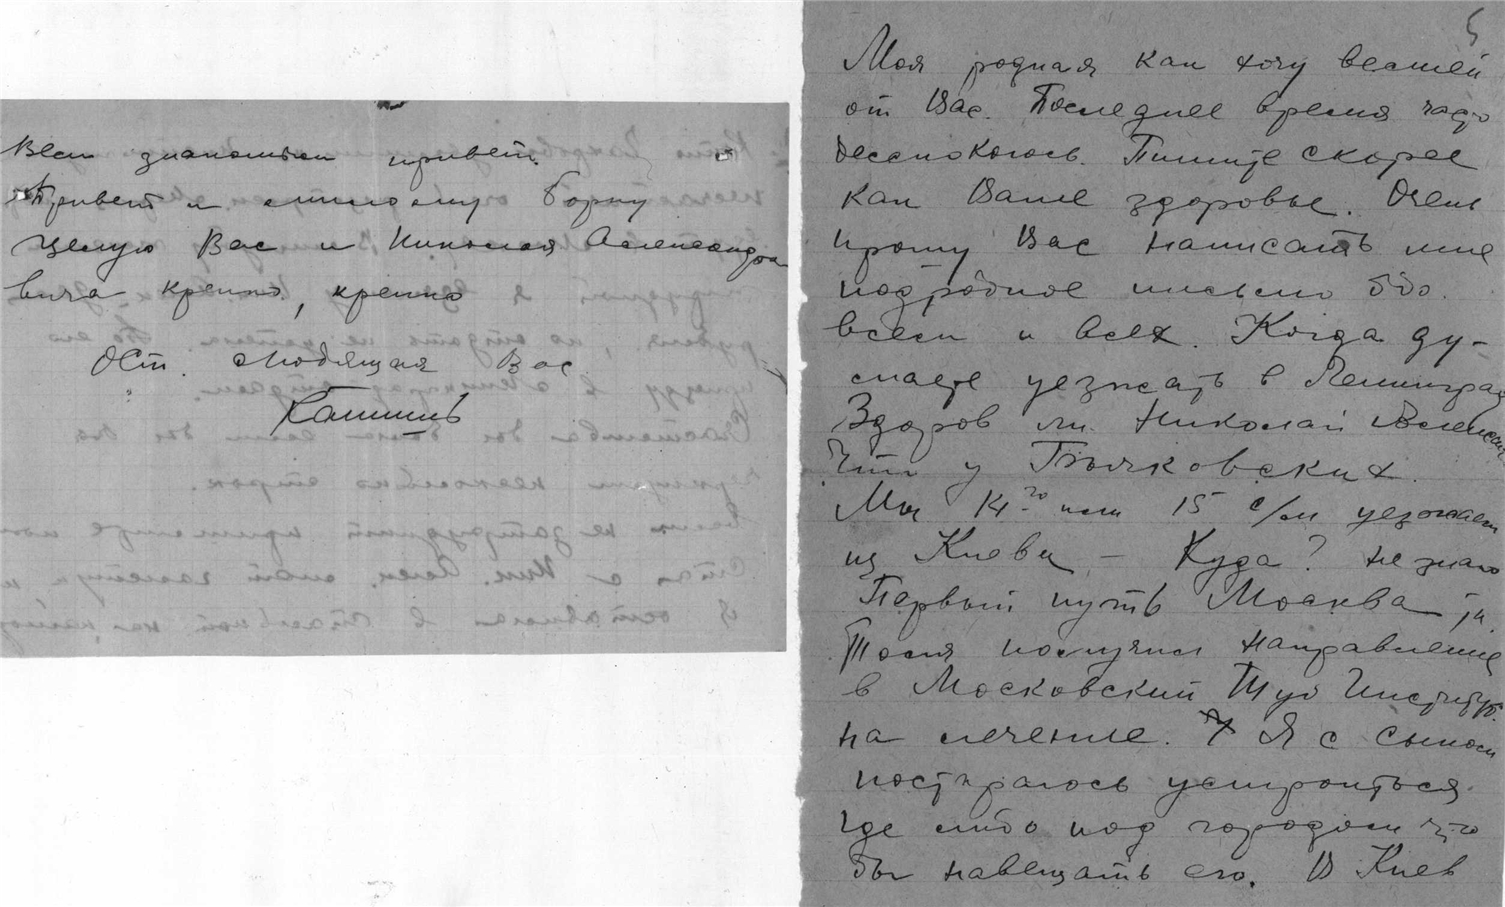 Всем знакомым привет.
Привет и милому Борку
Целую Вас и Николая Александро
вича крепко, крепко
Ост. любящая Вас
5
Моя родная как хочу вестей
от Вас. Последнее время часто
беспокоюсь. Пишите скорее
как Ваше здоровье. Очень
прошу Вас написать мне
подробное письмо обо
всем и всех. Когда ду-
маете уезжать в Ленинград
Здоров ли Николай Александ
Что у
Мы 14го или 15 с/м уезжаем
из Киева – Куда? не знаю
Первый путь Москва
Толя получил направление
в Московский Туб Институт.
на лечение. Я с сыном
постараюсь устроиться
где либо под городом что
бы навещать его. В Киев